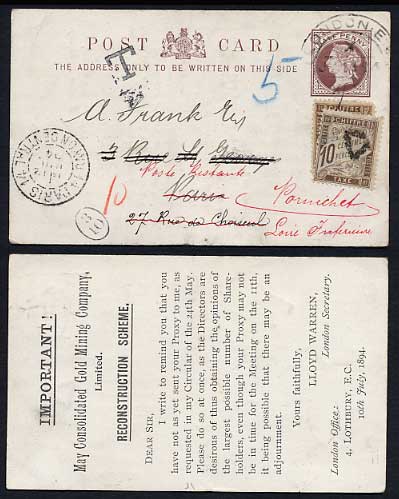 POST CARD
THE ADDRESS ONLY TO BE WRITTEN ON THIS SIDE
HALF PENNY
LONDON E.C
T
5
A. Frank Esq
3 Rue St George
Poste Restante
Paris
Pornichet
27 Rue de Choiseul
Loire Inférieure
10
3
10
PARIS
94
CHIFFRE
10
TAXE
IMPORTANT!
May Consolidated Gold Mining Company,
Limited.
RECONSTRUCTION SCHEME.
DEAR SIR,
I write to remind you that you
have not as yet sent your Proxy to me, as
requested in my Circular of the 24th May.
Please do so at once, as the Directors are
desirous of thus obtaining the opinions of
the largest possible number of Share-
holders, even though your Proxy may not
be in time for the Meeting on the 11th,
it being possible that there may be an
adjournment.
Yours faithfully,
LLOYD WARREN,
London Secretary.
London Office:
4, LOTHBURY, E.C.
10th July, 1894.